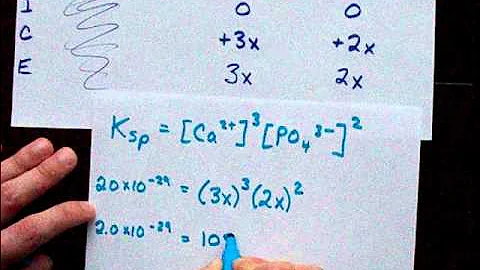 I 0 0
C +3x +2x
E 3x 2x
Ksp = [Ca²⁺]³[PO₄³⁻]²
2.0×10⁻²⁹ = (3x)³(2x)²
2.0×10⁻²⁹ = 10